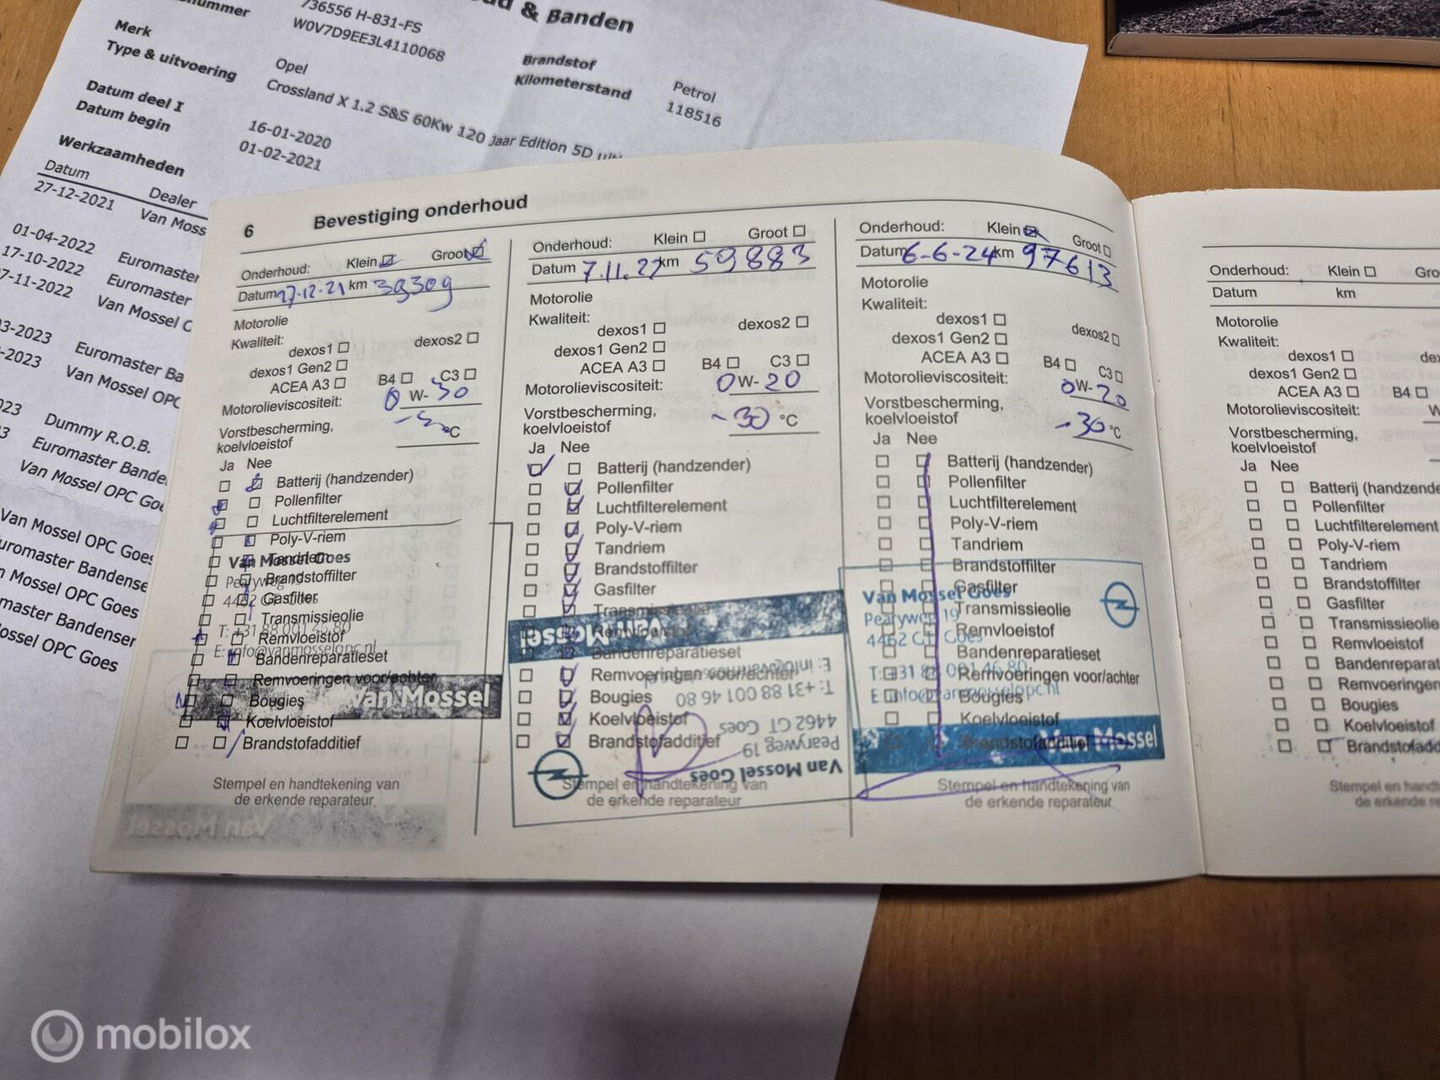 & Banden
736556 H-831-FS
W0V7D9EE3L4110068
Merk
Opel
Brandstof
Petrol
Type & uitvoering
Crossland X 1.2 S&S 60Kw 120 Jaar Edition 5D
Kilometerstand
118516
Datum deel I
16-01-2020
Datum begin
01-02-2021
Werkzaamheden
Datum
Dealer
27-12-2021
Van Moss
01-04-2022
Euromaster
17-10-2022
Euromaster
7-11-2022
Van Mossel O
3-2023
Euromaster Ba
-2023
Van Mossel OPC
023
Dummy R.O.B.
Euromaster Banden
Van Mossel OPC Goe
Van Mossel OPC Goes
uromaster Bandense
n Mossel OPC Goes
master Bandenser
ossel OPC Goes
6
Bevestiging onderhoud
Onderhoud: Klein Groot
Datum 27-12-21 km
Motorolie
Kwaliteit:
dexos1 dexos2
dexos1 Gen2
ACEA A3 B4 C3
Motorolieviscositeit: 0 W- 30
Vorstbescherming,
koelvloeistof °C
Ja Nee
Batterij (handzender)
Pollenfilter
Luchtfilterelement
Poly-V-riem
Tandriem
Brandstoffilter
Gasfilter
Transmissieolie
Remvloeistof
Bandenreparatieset
Remvoeringen voor/achter
Bougies
Koelvloeistof
Brandstofadditief
Van Mossel Goes
Pearyweg 19
4462 GT Goes
T: +31 88 001 46 80
E: info@vanmosselopc.nl
Van Mossel
Stempel en handtekening van
de erkende reparateur
Onderhoud: Klein Groot
Datum 7.11.22 km 59883
Motorolie
Kwaliteit:
dexos1 dexos2
dexos1 Gen2
ACEA A3 B4 C3
Motorolieviscositeit: 0 W- 20
Vorstbescherming,
koelvloeistof -30 °C
Ja Nee
Batterij (handzender)
Pollenfilter
Luchtfilterelement
Poly-V-riem
Tandriem
Brandstoffilter
Gasfilter
Transmissieolie
Remvloeistof
Bandenreparatieset
Remvoeringen voor/achter
Bougies
Koelvloeistof
Brandstofadditief
Van Mossel
T: +31 88 001 46 80
4462 GT Goes
Pearyweg 19
Van Mossel Goes
Stempel en handtekening van
de erkende reparateur
Onderhoud: Klein Groot
Datum 6-6-24 km 97613
Motorolie
Kwaliteit:
dexos1 dexos2
dexos1 Gen2
ACEA A3 B4 C3
Motorolieviscositeit: 0 W- 20
Vorstbescherming,
koelvloeistof -30 °C
Ja Nee
Batterij (handzender)
Pollenfilter
Luchtfilterelement
Poly-V-riem
Tandriem
Brandstoffilter
Gasfilter
Transmissieolie
Remvloeistof
Bandenreparatieset
Remvoeringen voor/achter
Bougies
Koelvloeistof
Brandstofadditief
Van Mossel Goes
Pearyweg 19
4462 GT Goes
T: +31 88 001 46 80
E: info@vanmosselopc.nl
Van Mossel
Stempel en handtekening van
de erkende reparateur
Onderhoud: Klein Groo
Datum km
Motorolie
Kwaliteit:
dexos1 dex
dexos1 Gen2
ACEA A3 B4
Motorolieviscositeit:
Vorstbescherming,
koelvloeistof
Ja Nee
Batterij (handzende
Pollenfilter
Luchtfilterelement
Poly-V-riem
Tandriem
Brandstoffilter
Gasfilter
Transmissieolie
Remvloeistof
Bandenreparat
Remvoeringen
Bougies
Koelvloeistof
Brandstofadd
Stempel en handt
de erkende re
mobilox